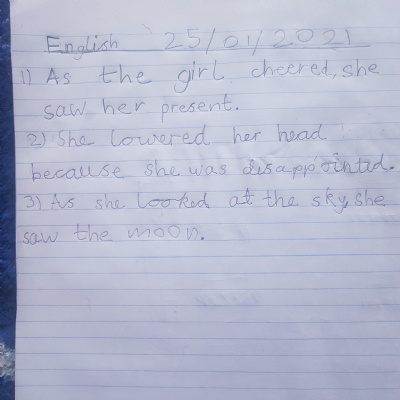 English 25/01/2021
1) As the girl cheered, she
saw her present.
2) She lowered her head
because she was disappointed.
3) As she looked at the sky, she
saw the moon.